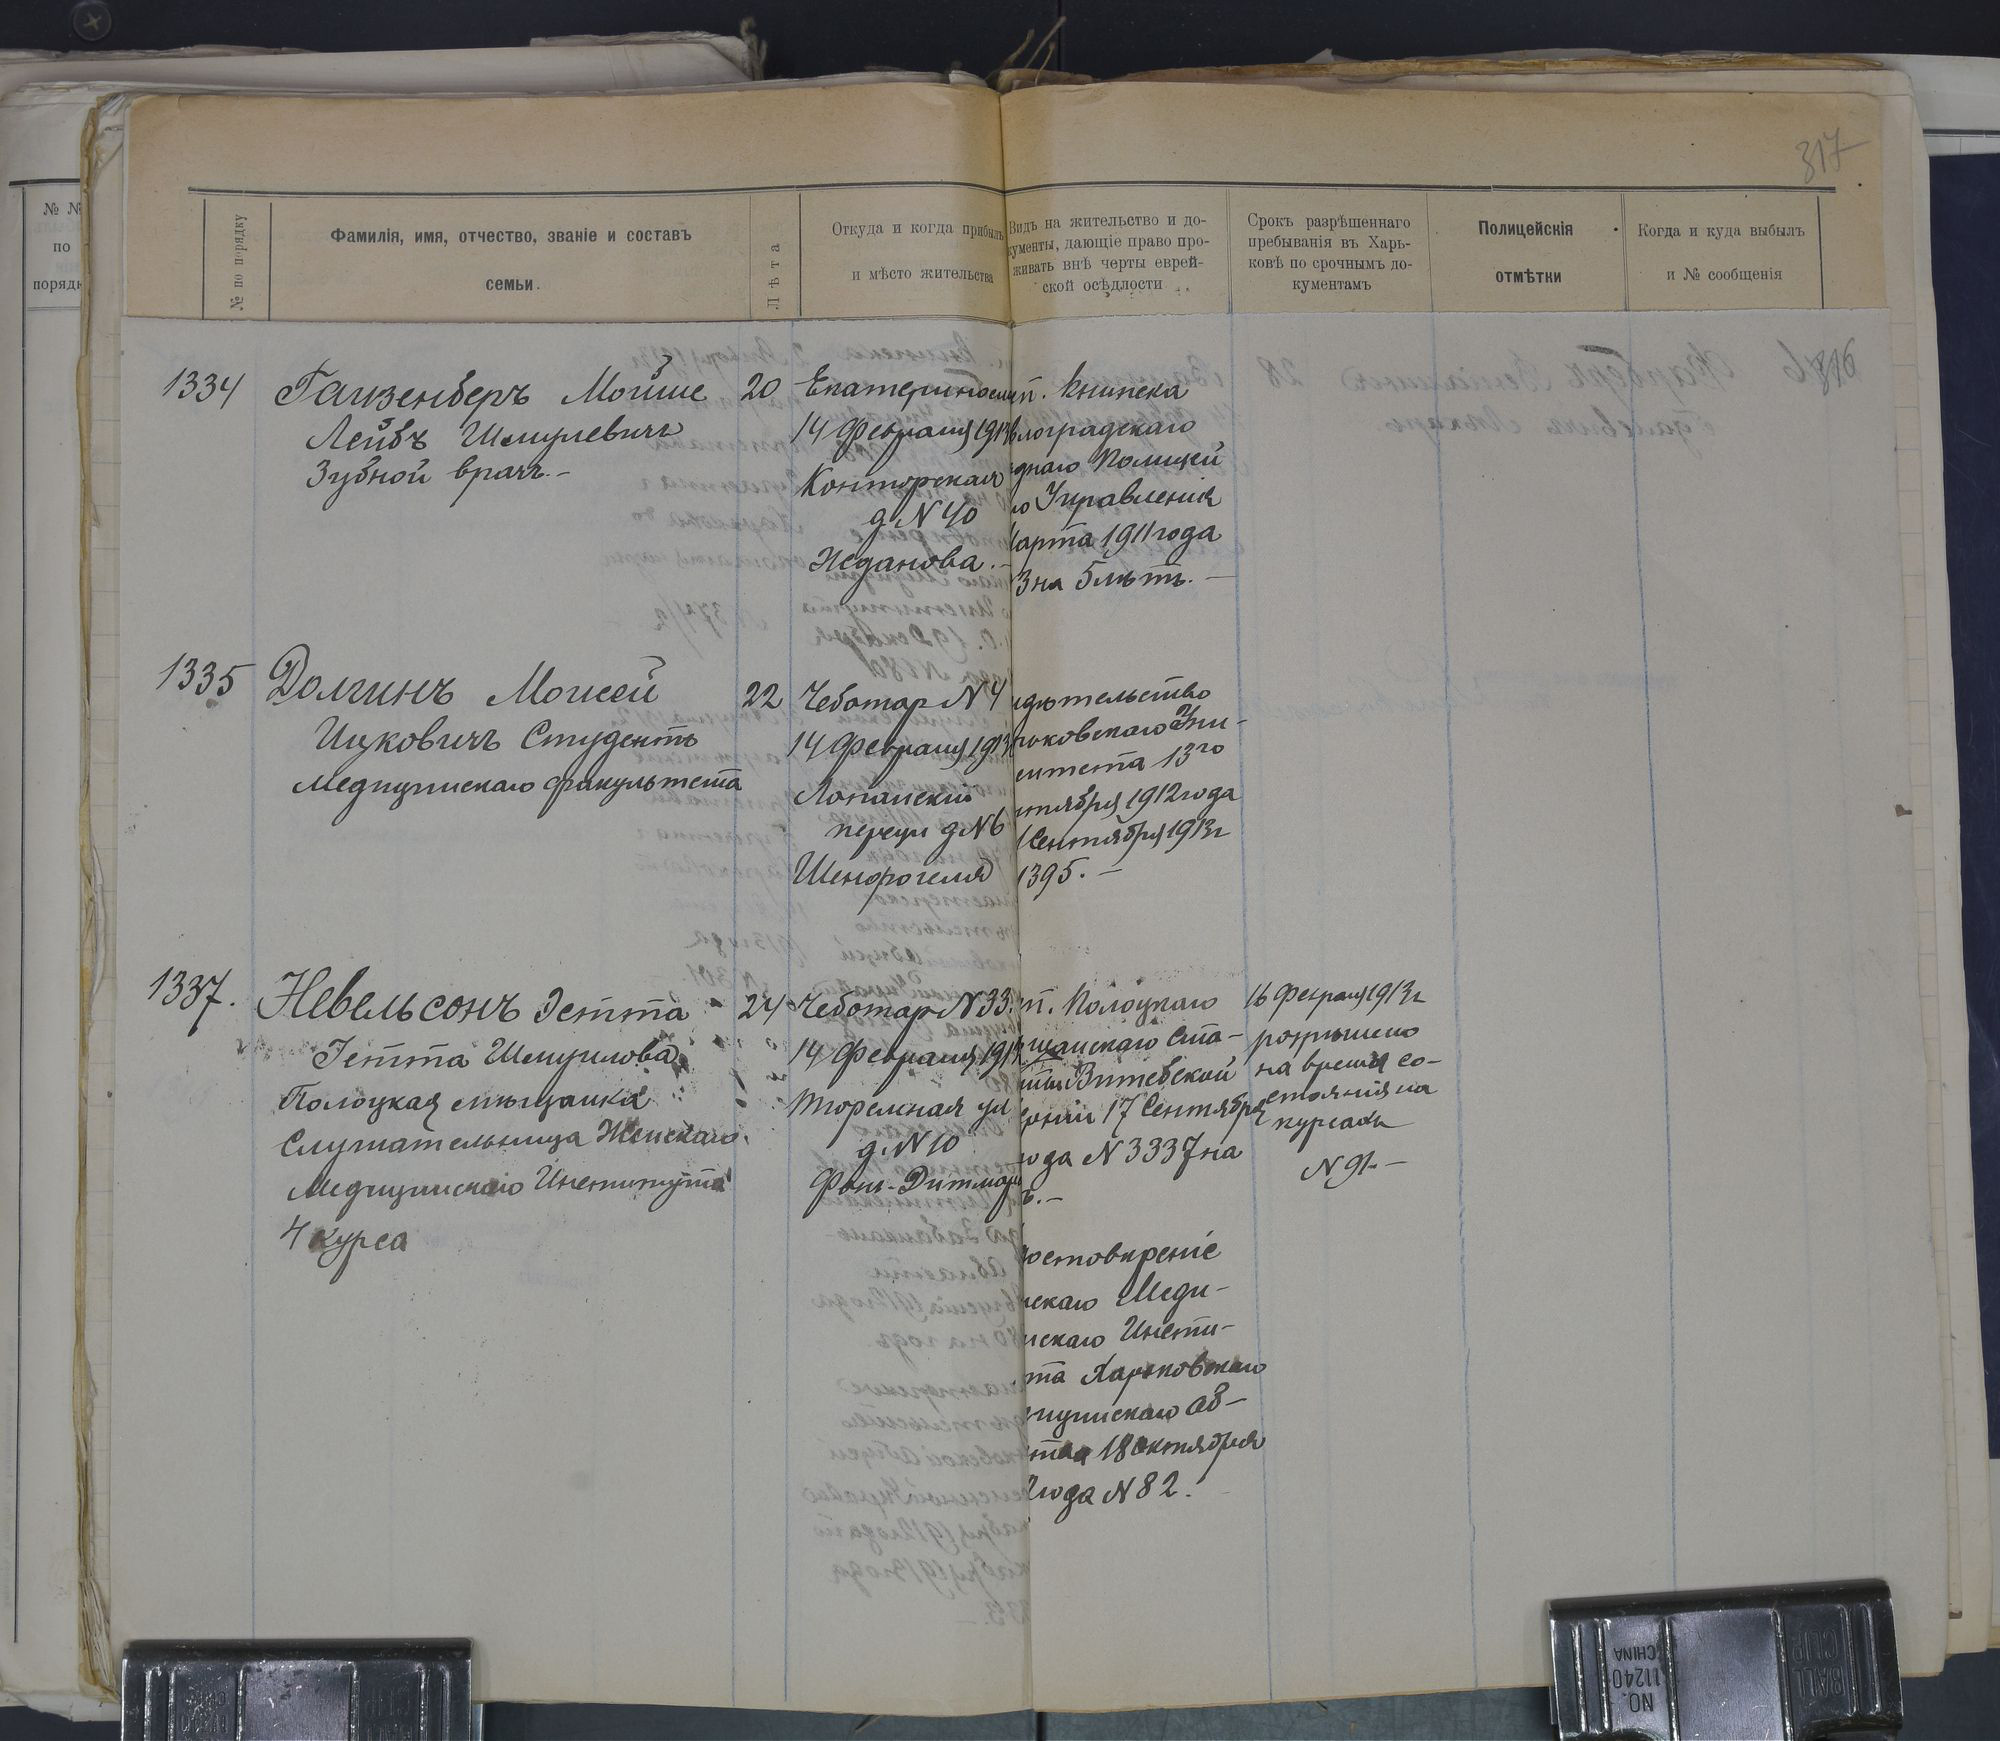 317
№ №
по
порядк
№ по порядку
Фамилія, имя, отчество, званіе и составъ
семьи.
Лѣта
Откуда и когда прибылъ
и мѣсто жительства
Видъ на жительство и до-
кументы, дающіе право про-
живать внѣ черты еврей-
ской осѣдлости
Срокъ разрѣшеннаго
пребыванія въ Харь-
ковѣ по срочнымъ до-
кументамъ
Полицейскія
отмѣтки
Когда и куда выбылъ
и № сообщенія
1334
Гаизенберъ Мойше
Лейбъ Шмулевичъ
Зубной врачъ.-
20
Екатеринослав
14 Февраля 1913
Конторская
д. N 40
Жданова.-
п. книжка
влоградскаго
днаго Полицей
го Управленія
арта 1911 года
3 на 5 лѣтъ.-
1335
Долгинъ Моисей
Ицковичъ Студентъ
Медицинскаго факультета
22
Чеботар N 4
14 Февраля 1913
Лопанскій
переул д N 6
Шенфогеля
идѣтельство
рьковскаго Уни-
ситета 13го
нтября 1912 года
1 Сентября 1913 г
1395.-
1337.
Невельсонъ Эстта
Іетта Шмуилова
Полоцкая мѣщанка
Слушательница Женскаго
Медицинскаго Института
4 курса
24
Чеботар N 33.
14 Февраля 1913
Тюремная ул
д. N 10
Фонъ-Дитмаръ
п. Полоцкаго
щанскаго Ста-
Витебской
рніи 17 Сентября
ода N 3337 на
ъ.-
остовѣреніе
скаго Меди-
нскаго Инсти-
та Харьковскаго
ицинскаго Об-
тва 18 октября
2 года N 82.
16 Февраля 1913 г
разрѣшено
на время со-
стоянія на
курсахъ
N 91.-
NO.
11240
CHINA
BALL
CLIP